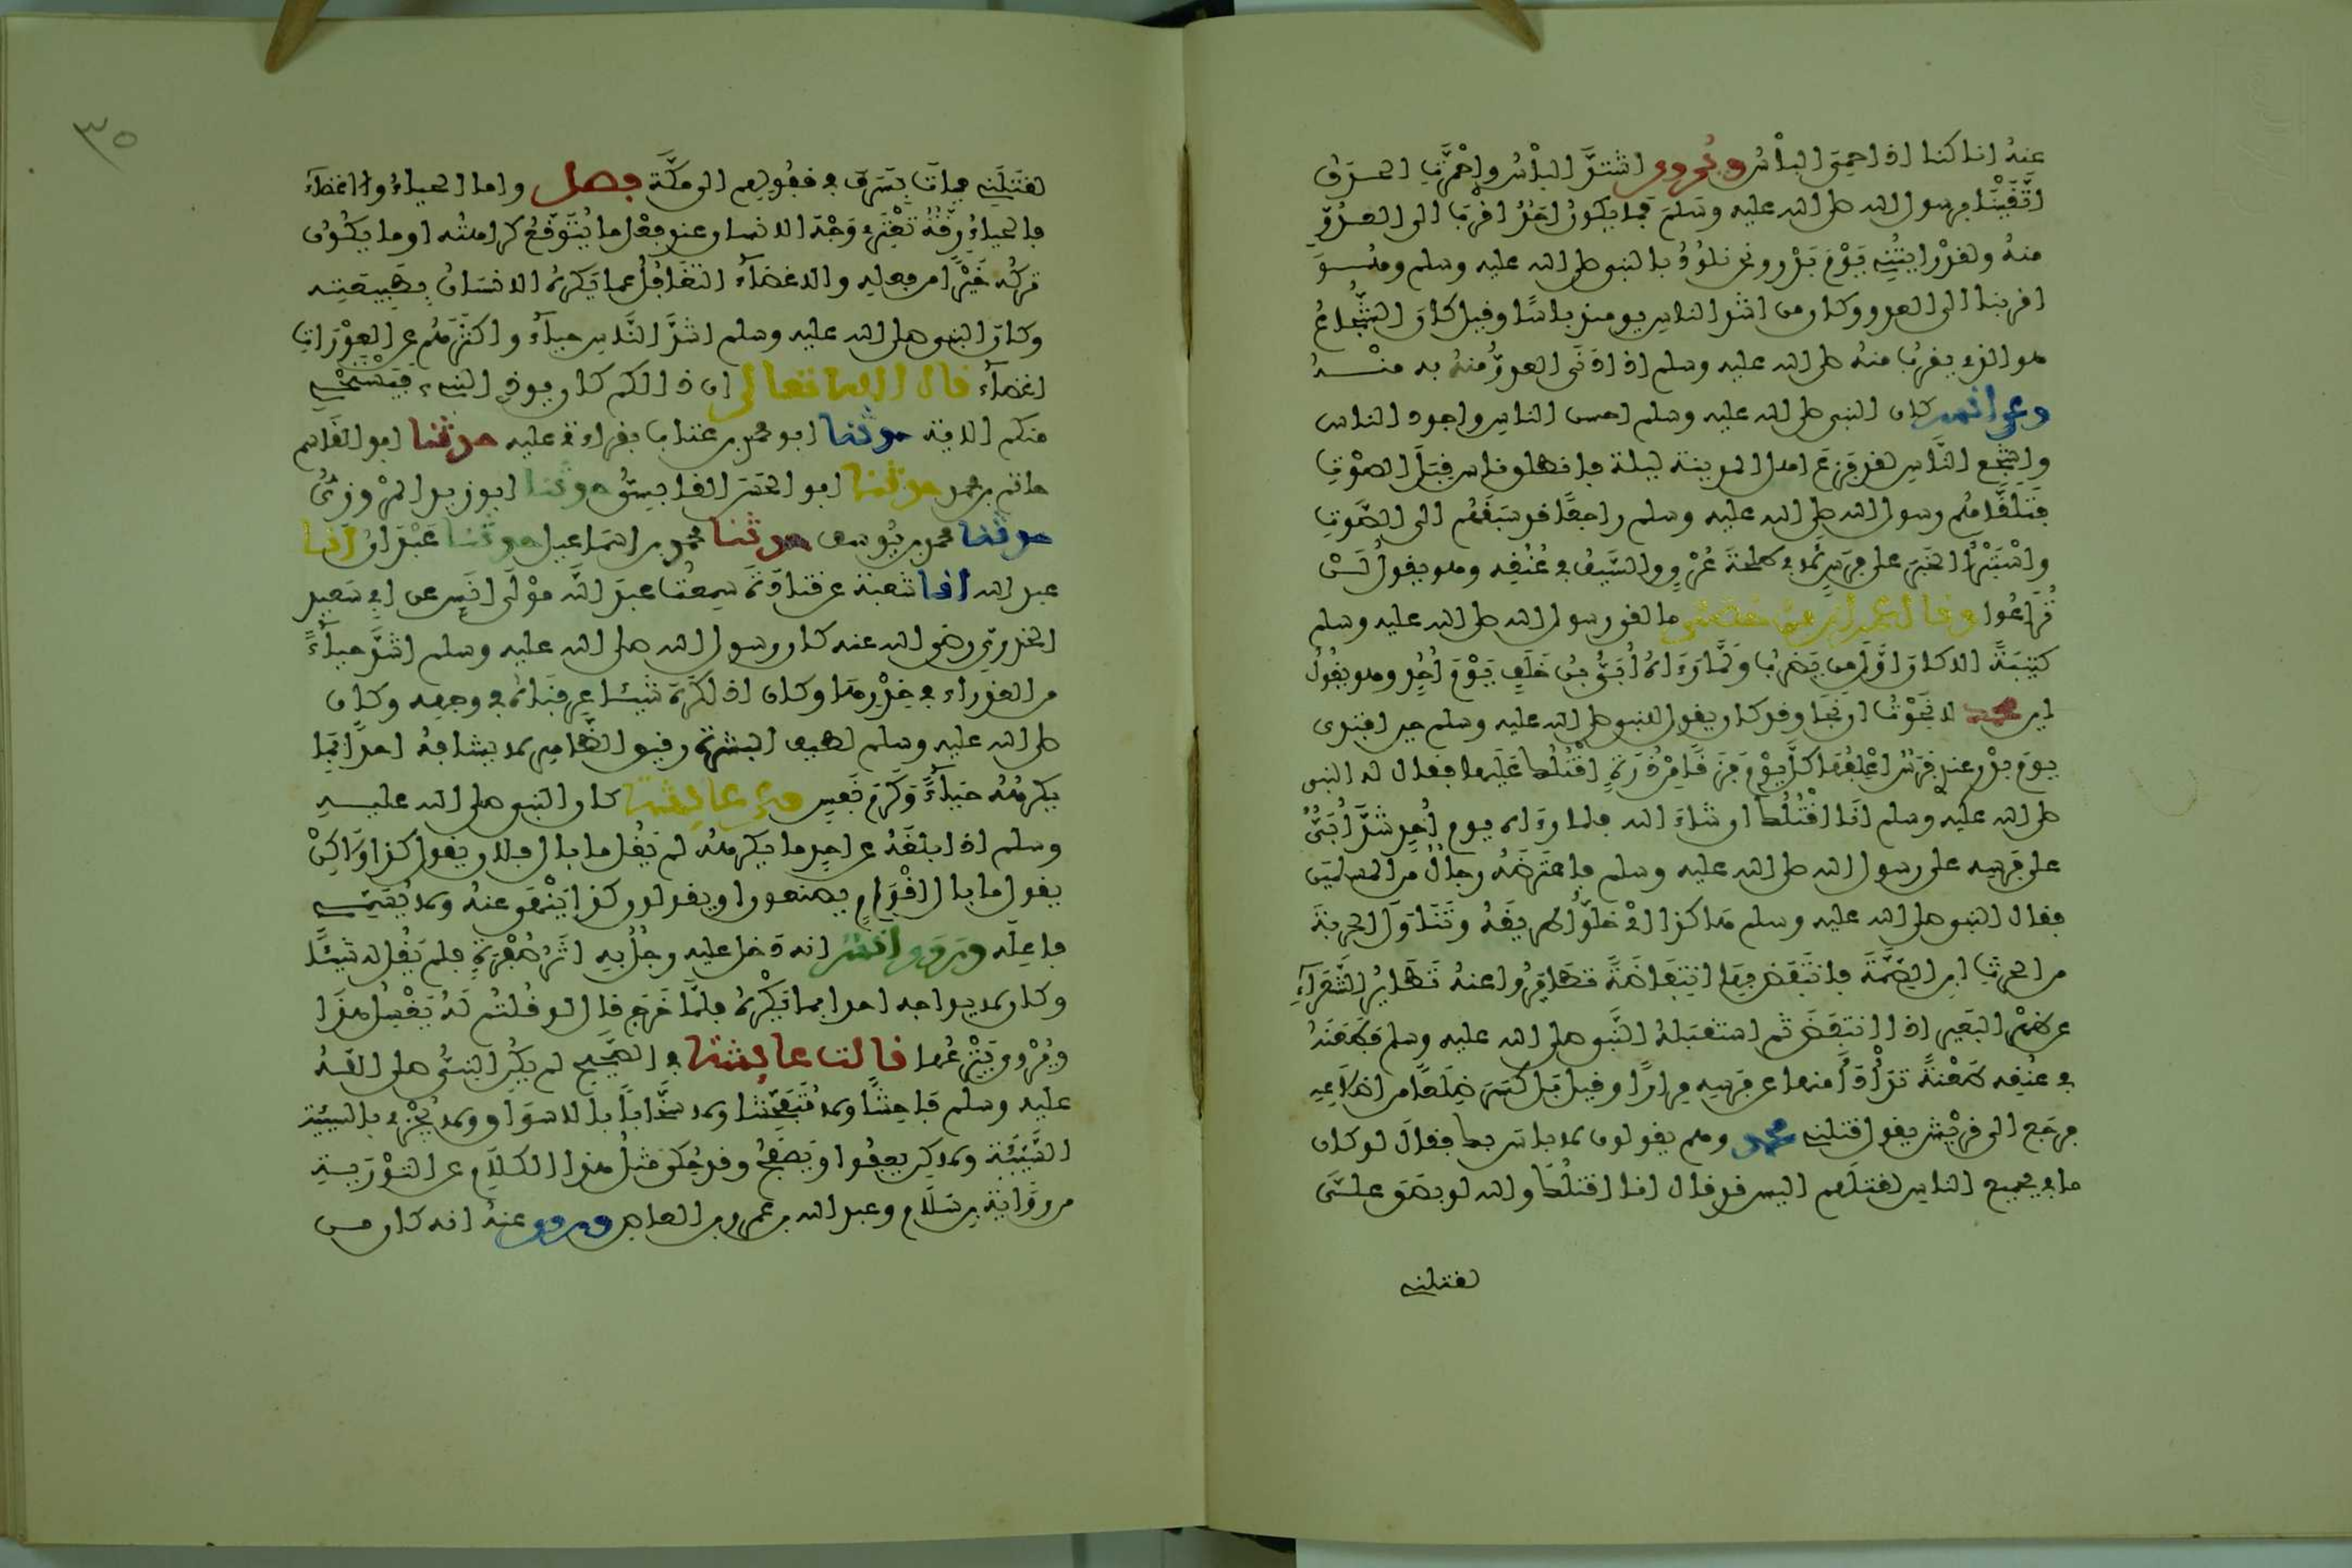 عنه انا كنا اذا حمي البأس ويروى اشتد البأس واحمرت الحدق
اتقينا برسول الله صلى الله عليه وسلم فما يكون احد اقرب الى العدو
منه ولقد رايتني يوم بدر ونحن نلوذ بالنبي صلى الله عليه وسلم وهو
اقربنا الى العدو وكان من اشد الناس يومئذ باسا وقيل كان الشجاع
هو الذي يقرب منه صلى الله عليه وسلم اذا دنى العدو منه به منه
وعن انس كان النبي صلى الله عليه وسلم احسن الناس واجود الناس
واشجع الناس لقد فزع اهل المدينة ليلة فانطلق ناس قبل الصوت
فتلقاهم رسول الله صلى الله عليه وسلم راجعا قد سبقهم الى الصوت
واستبرا الخبر على فرس لابي طلحة عري والسيف في عنقه وهو يقول لن
تراعوا وقال عمران بن حصين ما لقي رسول الله صلى الله عليه وسلم
كتيبة الا كان اول من يضرب ولما رءاه ابي بن خلف يوم احد وهو يقول
اين محمد لا نجوت ان نجا وقد كان يقول للنبي صلى الله عليه وسلم حين افتدى
يوم بدر عندي فرس اعلفها كل يوم فرقا من ذرة اقتلك عليها فقال له النبي
صلى الله عليه وسلم انا اقتلك ان شاء الله فلما رءاه يوم احد شد ابي
على فرسه على رسول الله صلى الله عليه وسلم فاعترضه رجال من المسلمين
فقال النبي صلى الله عليه وسلم هاكذا اي خلوا طريقه وتناول الحربة
من الحرث ابن الصمة فانتفض بها انتفاضة تطايروا عنه تطاير الشعراء
عن ظهر البعير اذا انتفض ثم استقبله النبي صلى الله عليه وسلم فطعنه
في عنقه طعنة تدأدأ منها عن فرسه مرارا وقيل بل كسر ضلعا من اضلاعه
فرجع الى قريش يقول قتلني محمد وهم يقولون لا باس بك فقال لو كان
ما بي بجميع الناس لقتلهم اليس قد قال انا اقتلك والله لو بصق على
لقتلني
٣٥
لقتلني فمات بسرف في قفولهم الى مكة فصل واما الحياء والاغضاء
فالحياء رقة تعتري وجه الانسان عند فعل ما يتوقع كراهته او ما يكون
تركه خيرا من فعله والاغضاء التغافل عما يكره الانسان بطبيعته
وكان النبي صلى الله عليه وسلم اشد الناس حياء واكثرهم عن العورات
اغضاء قال الله تعالى ان ذالكم كان يوذي النبيء فيستحي
منكم الاية حدثنا ابو محمد بن عتاب بقراءة عليه حدثنا ابو القاسم
حاتم بن محمد حدثنا ابو الحسن القابسي حدثنا ابو زيد المروزي
حدثنا محمد بن يوسف حدثنا محمد بن اسماعيل حدثنا عبدان انا
عبد الله انا شعبة عن قتادة سمعت عبد الله مولى انس عن ابي سعيد
الخدري رضي الله عنه كان رسول الله صلى الله عليه وسلم اشد حياء
من العذراء في خدرها وكان اذا كره شيئا عرفناه في وجهه وكان
صلى الله عليه وسلم لطيف البشرة رقيق الظاهر لا يشافه احدا بما
يكرهه حياء وكرم نفس وعن عايشة كان النبي صلى الله عليه
وسلم اذا بلغه عن احد ما يكرهه لم يقل ما بال فلان يقول كذا ولكن
يقول ما بال اقوام يصنعون او يقولون كذا ينهى عنه ولا يسمي
فاعله وروى انس انه دخل عليه رجل به اثر صفرة فلم يقل له شيئا
وكان لا يواجه احدا بما يكره فلما خرج قال لو قلتم له يغسل هذا
ويروى ينزعها قالت عايشة في الصحيح لم يكن النبي صلى الله
عليه وسلم فاحشا ولا متفحشا ولا سخابا بالاسواق ولا يجزي بالسيئة
السيئة ولاكن يعفوا ويصفح وقد حكي مثل هذا الكلام عن التورية
من رواية بن سلام وعبد الله بن عمرو بن العاص وروي عنه انه كان من